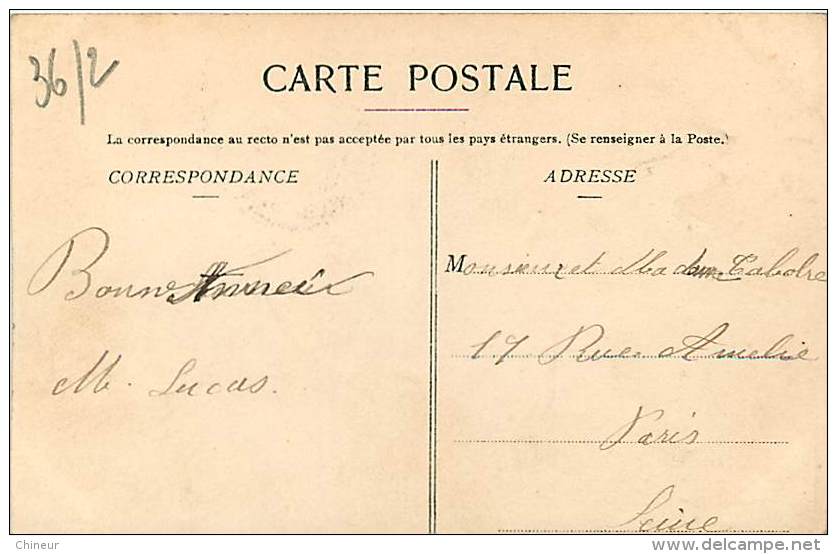 36/2
CARTE POSTALE
La correspondance au recto n'est pas acceptée par tous les pays étrangers. (Se renseigner à la Poste.)
CORRESPONDANCE
Bonne Année
M. Lucas.
ADRESSE
Monsieur et Madame
17 Rue Amelie
Paris
Seine
Chineur
www.delcampe.net